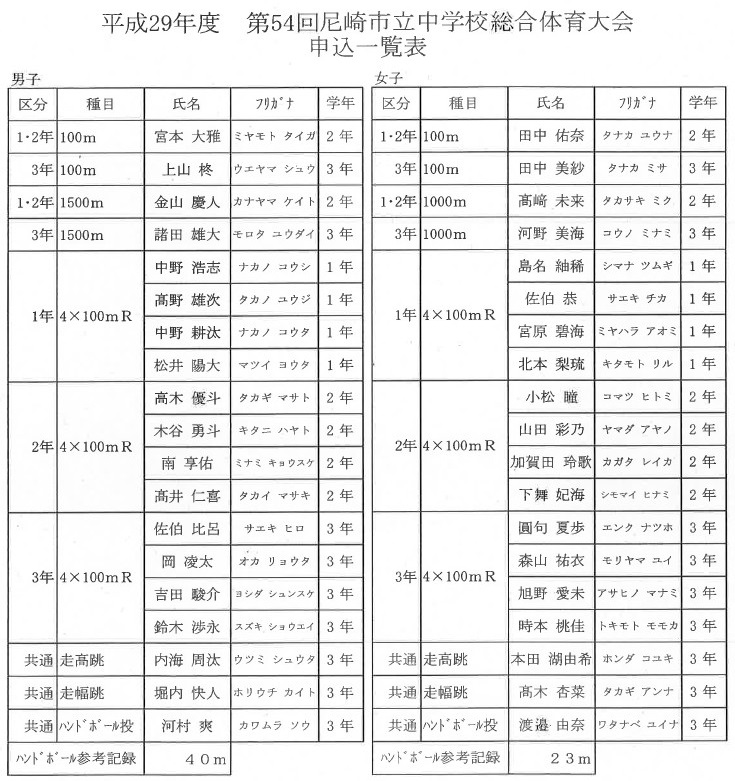 平成29年度　第54回尼崎市立中学校総合体育大会
申込一覧表
男子
区分 種目 氏名 フリガナ 学年
1・2年 100m 宮本 大雅 ミヤモト タイガ 2 年
3年 100m 上山 柊 ウエヤマ シュウ 3 年
1・2年 1500m 金山 慶人 カナヤマ ケイト 2 年
3年 1500m 諸田 雄大 モロタ ユウダイ 3 年
1年 4×100mR
中野 浩志 ナカノ コウシ 1 年
髙野 雄次 タカノ ユウジ 1 年
中野 耕汰 ナカノ コウタ 1 年
松井 陽大 マツイ ヨウタ 1 年
2年 4×100mR
高木 優斗 タカギ マサト 2 年
木谷 勇斗 キタニ ハヤト 2 年
南 享佑 ミナミ キョウスケ 2 年
髙井 仁喜 タカイ マサキ 2 年
3年 4×100mR
佐伯 比呂 サエキ ヒロ 3 年
岡 凌太 オカ リョウタ 3 年
吉田 駿介 ヨシダ シュンスケ 3 年
鈴木 渉永 スズキ ショウエイ 3 年
共通 走高跳 内海 周汰 ウツミ シュウタ 3 年
共通 走幅跳 堀内 快人 ホリウチ カイト 3 年
共通 ハンドボール投 河村 爽 カワムラ ソウ 3 年
ハンドボール参考記録 40m
女子
区分 種目 氏名 フリガナ 学年
1・2年 100m 田中 佑奈 タナカ ユウナ 2 年
3年 100m 田中 美紗 タナカ ミサ 3 年
1・2年 1000m 髙﨑 未来 タカサキ ミク 2 年
3年 1000m 河野 美海 コウノ ミナミ 3 年
1年 4×100mR
島名 紬稀 シマナ ツムギ 1 年
佐伯 恭 サエキ チカ 1 年
宮原 碧海 ミヤハラ アオミ 1 年
北本 梨琉 キタモト リル 1 年
2年 4×100mR
小松 瞳 コマツ ヒトミ 2 年
山田 彩乃 ヤマダ アヤノ 2 年
加賀田 玲歌 カガタ レイカ 2 年
下舞 妃海 シモマイ ヒナミ 2 年
3年 4×100mR
圓句 夏歩 エンク ナツホ 3 年
森山 祐衣 モリヤマ ユイ 3 年
旭野 愛未 アサヒノ マナミ 3 年
時本 桃佳 トキモト モモカ 3 年
共通 走高跳 本田 湖由希 ホンダ コユキ 3 年
共通 走幅跳 髙木 杏菜 タカギ アンナ 3 年
共通 ハンドボール投 渡邉 由奈 ワタナベ ユイナ 3 年
ハンドボール参考記録 23m